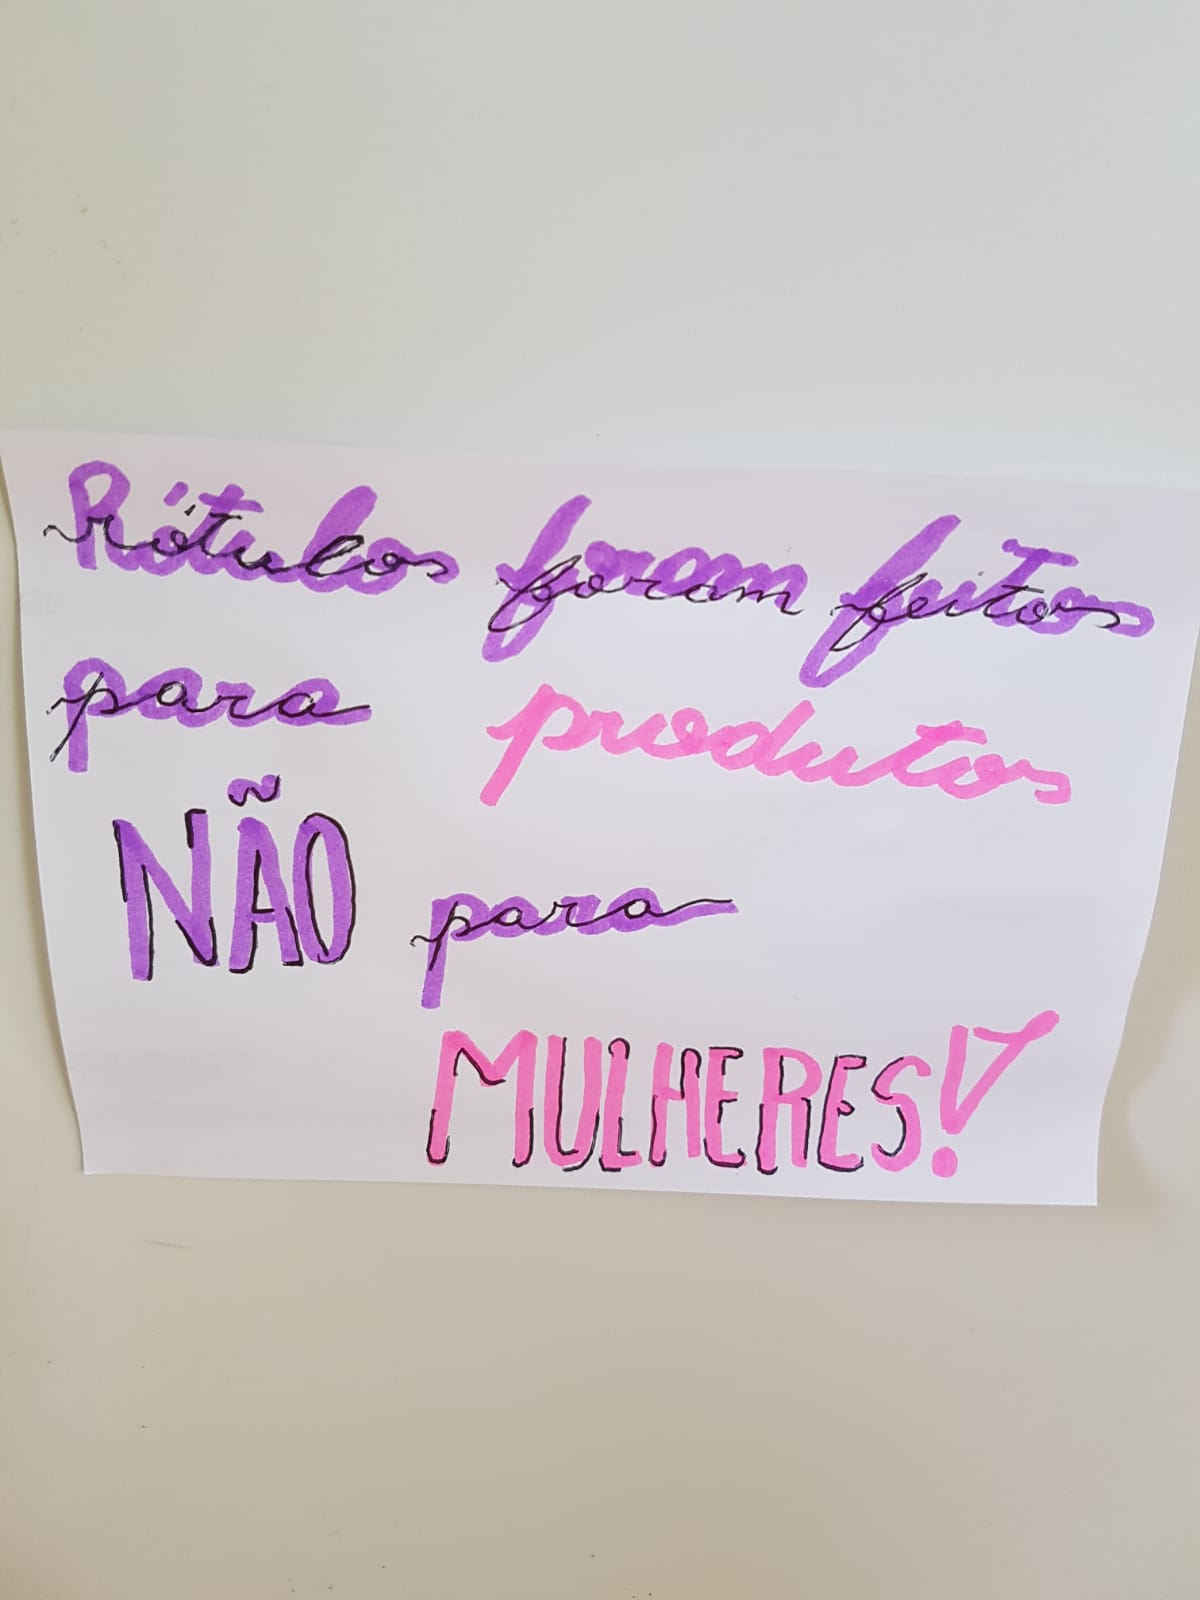 Rótulos foram feitos
para produtos
NÃO para
MULHERES!